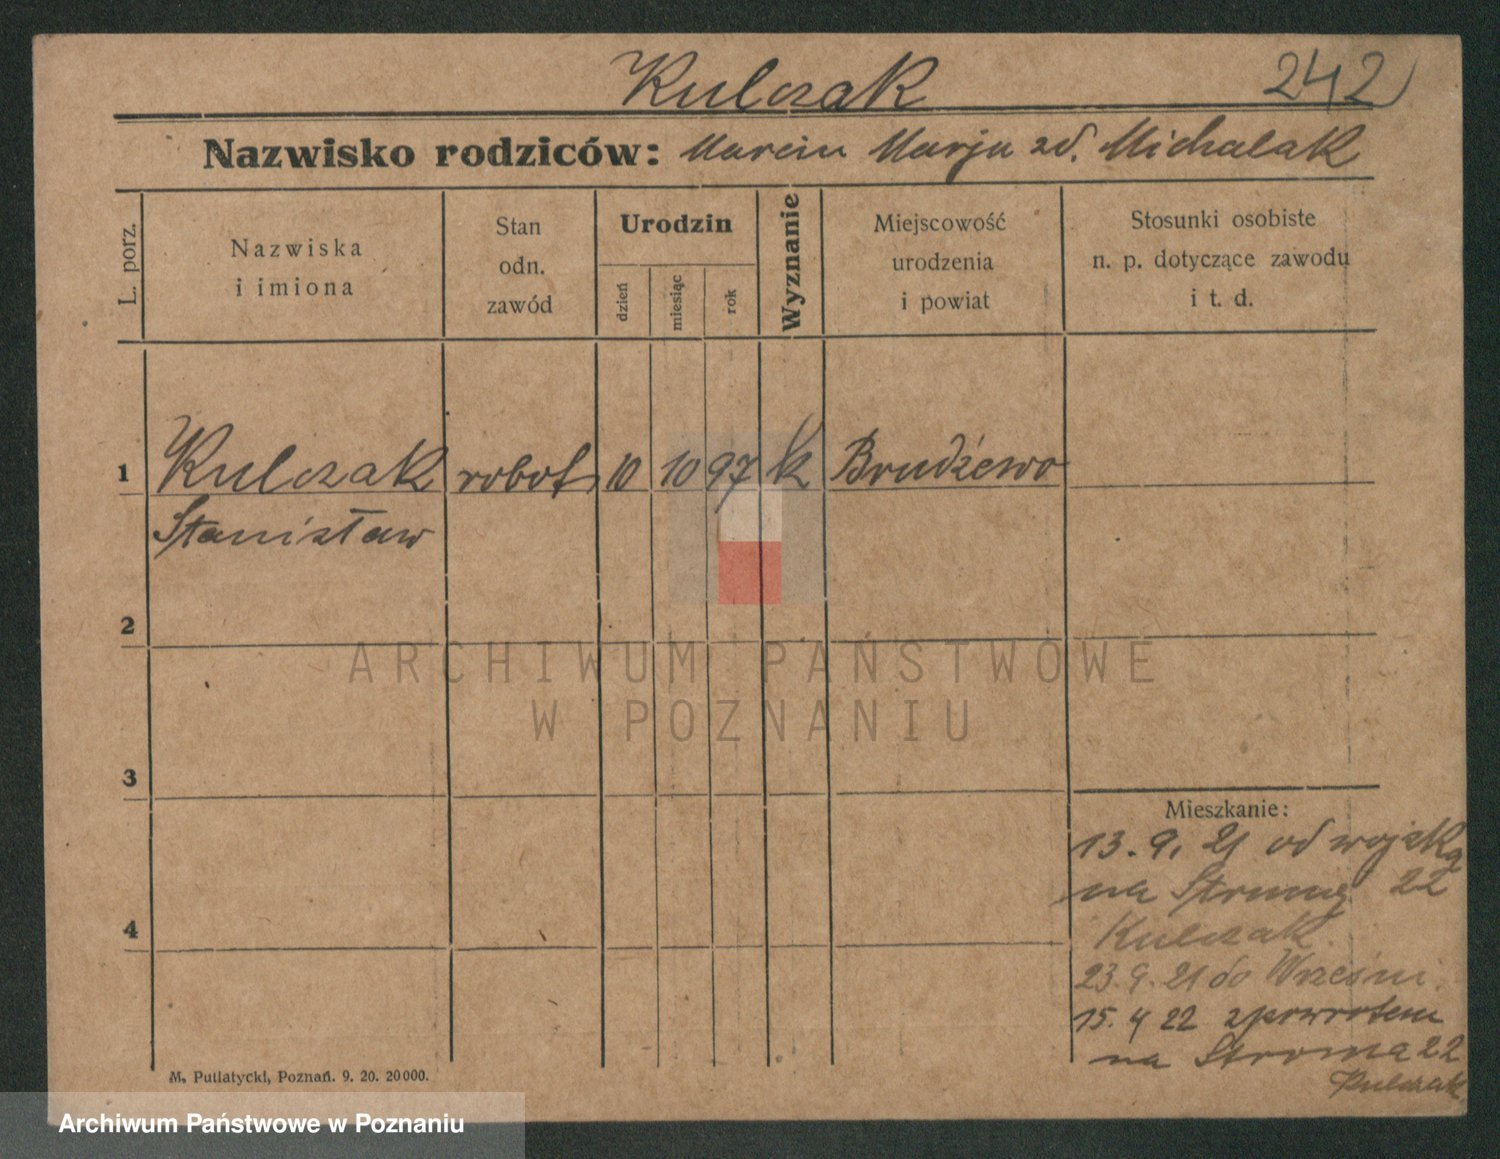 Kulczak 242
Nazwisko rodziców: Marcin Marja zd. Michalak
L. porz.
Nazwiska
i imiona
Stan
odn.
zawód
Urodzin
dzień
miesiąc
rok
Wyznanie
Miejscowość
urodzenia
i powiat
Stosunki osobiste
n. p. dotyczące zawodu
i t. d.
1 Kulczak robot 10 10 97 k Brudzewo
Stanisław
2
3
4
Mieszkanie:
13. 9. 21 od wojska
na 22
Kulczak
23. 9. 21 do Wrześni.
15. 4 22 zpowrotem
na Stroma 22
Kulczak
M. Putiatycki, Poznań. 9. 20. 20000.
ARCHIWUM PAŃSTWOWE
W POZNANIU
Archiwum Państwowe w Poznaniu